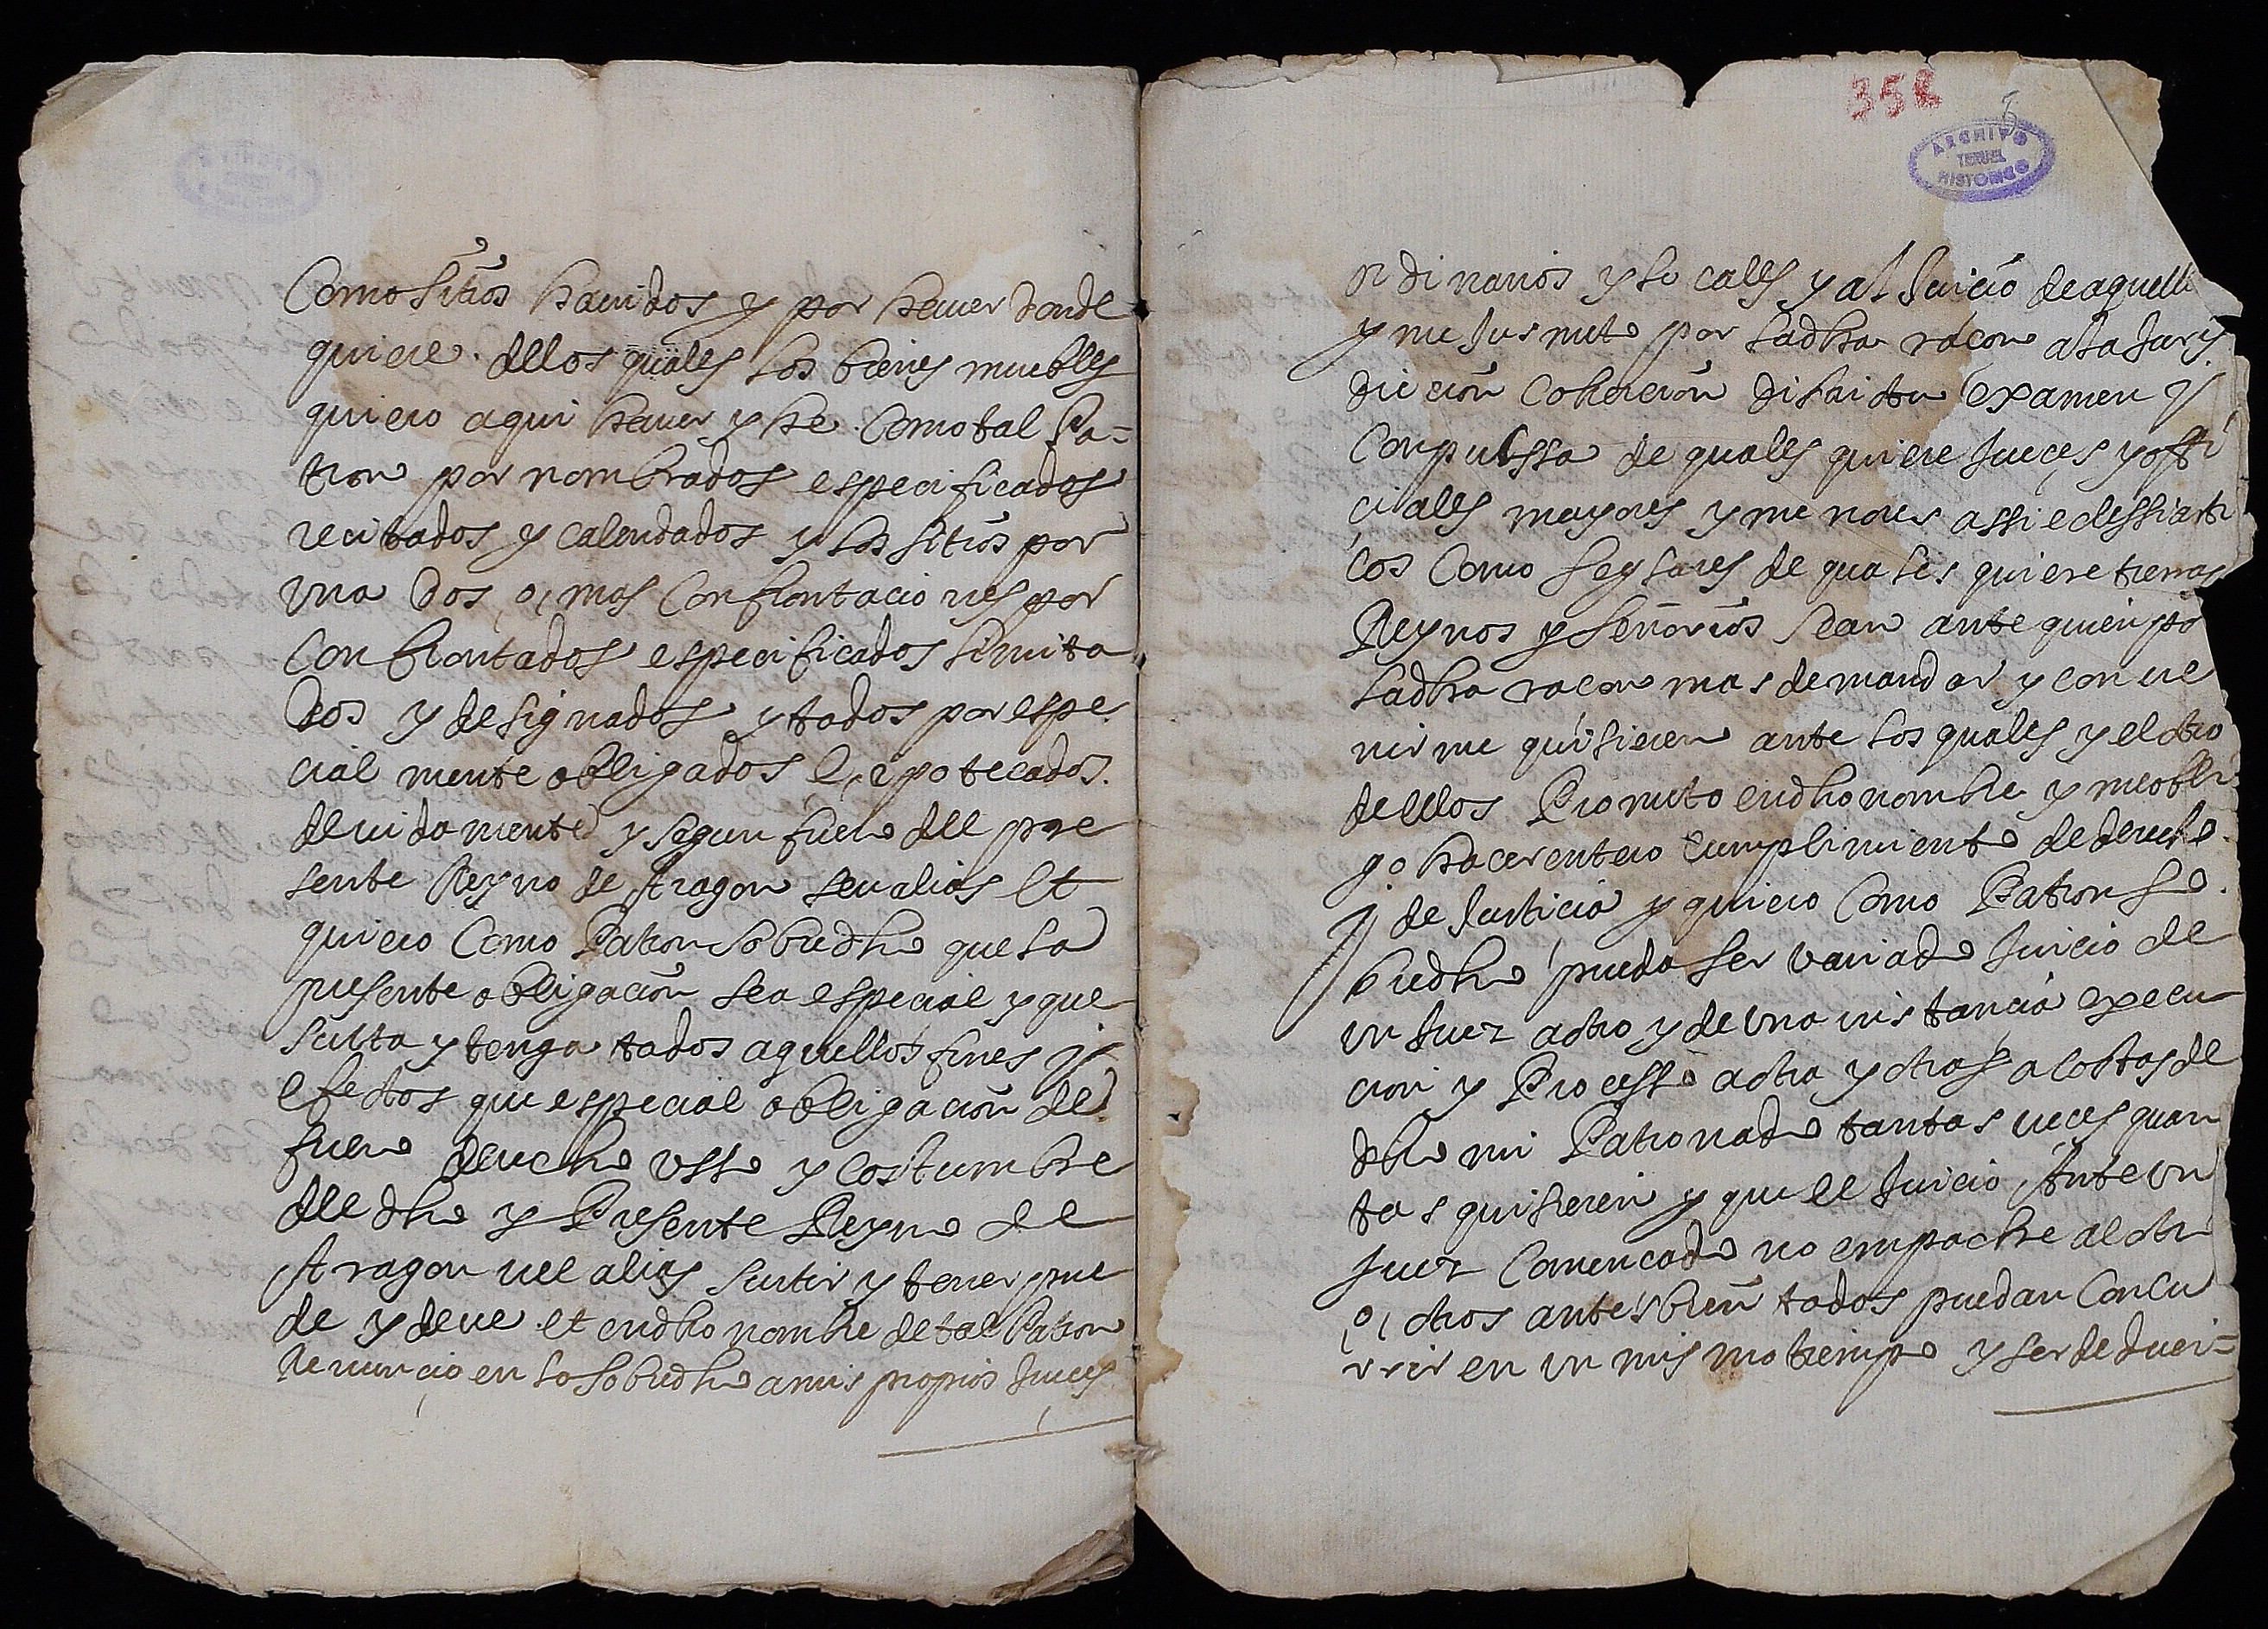 Como sitios hauidos y por hauer donde
quiere. dellos quales los bienes muebles
quiero aqui hauer y he. Como tal Pa=
tron por nombrados especificados
recitados y calendados y los sitios por
vna Dos, o, mas Confrontaciones por
Confrontados especificados limita
Dos y designados y todos por espe
cial mente obligados e, ipotecados.
deuidamente y segun fuero del pre
sente Reyno de Aragon seu alias Et
quiero Como Patron sobredho que la
presente obligacion sea especial y que
surta y tenga todos aquellos fines y
efectos que especial obligacion de
fuero derecho vsso y costumbre
del dho y Presente Reyno de
Aragon uel alias surtir y tener pue
de y deue. et en dho nombre de tal Patron
Renuncio en lo sobredho a mis propios Jueces
356
5
ARCHIVO
TERUEL
HISTORICO
ordinarios y lo cales y al Juicio de aquello
y me Jusmeto por la dha racon a la Juris
dicion Cohercion distrito examen y
Conpulssa de quales quiere Jueces y offi
ciales mayores y menores assi eclessiasti
cos Como seglares de quales quiere tierras
Reynos y señorios sean ante quien por
la dha racon mas demandar y conue
nir me quisieren ante los quales y el otro
dellos Prometo en dho nombre y me obli
go hacer entero cumplimiento de derecho.
y de Justicia y quiero Como Patron so
bredho pueda ser variado Juicio de
un Juez a otro y de vna instancia execu
cion y Processo a otra y otras a costas de
dho mi Patronado tantas ueces quan
tas quisieren y que el Juicio Ante un
Juez Comencado no empache al otro
, o, otros antes bien todos puedan Concu
rrir en un mismo tiempo y ser deduci=